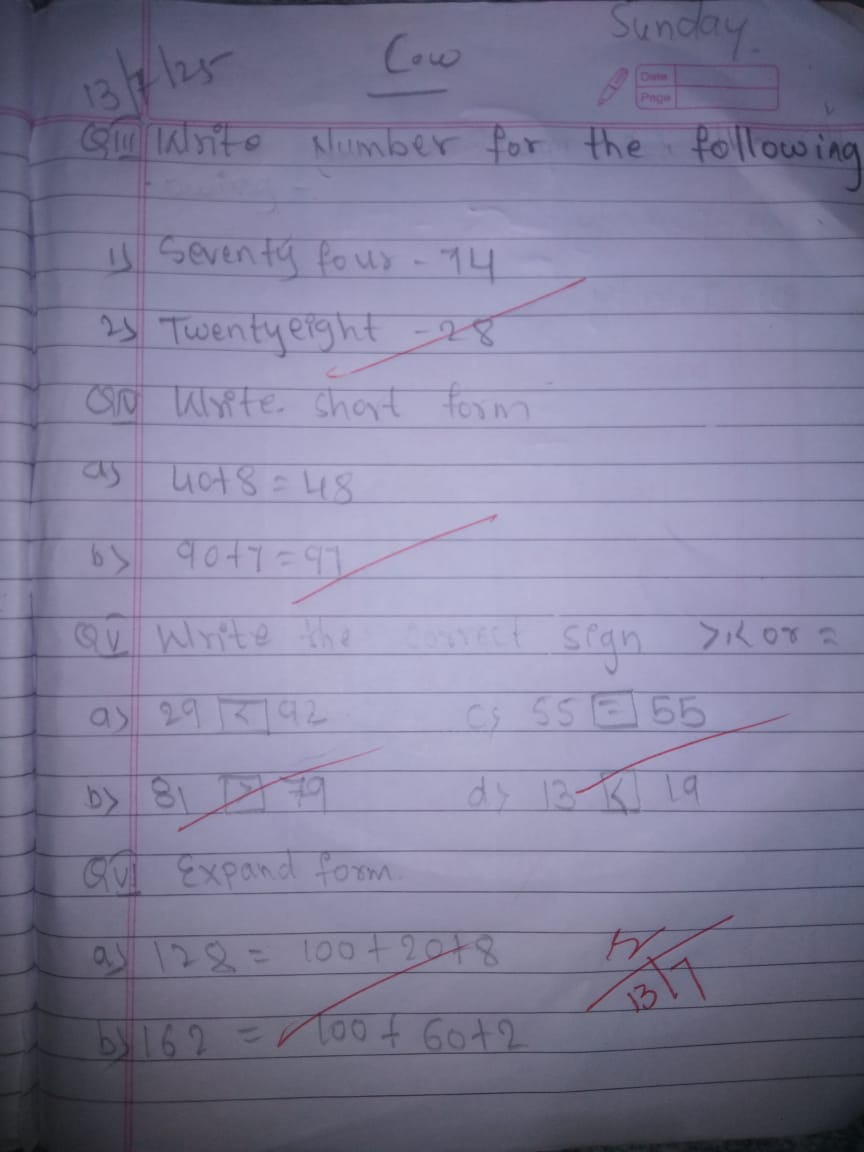 Sunday
13/7/25 C.w
Date
Page
QIII Write Number for the following
1) Seventy four - 74
2) Twentyeight - 28
QIV Write short form
a) 40+8=48
b) 90+7=97
QV Write the correct sign >,< or =
a) 29 < 92 c) 55 = 55
b) 81 > 79 d) 13 < 19
QVI Expand form.
a) 128 = 100+20+8
b) 162 = 100+60+2
13/7